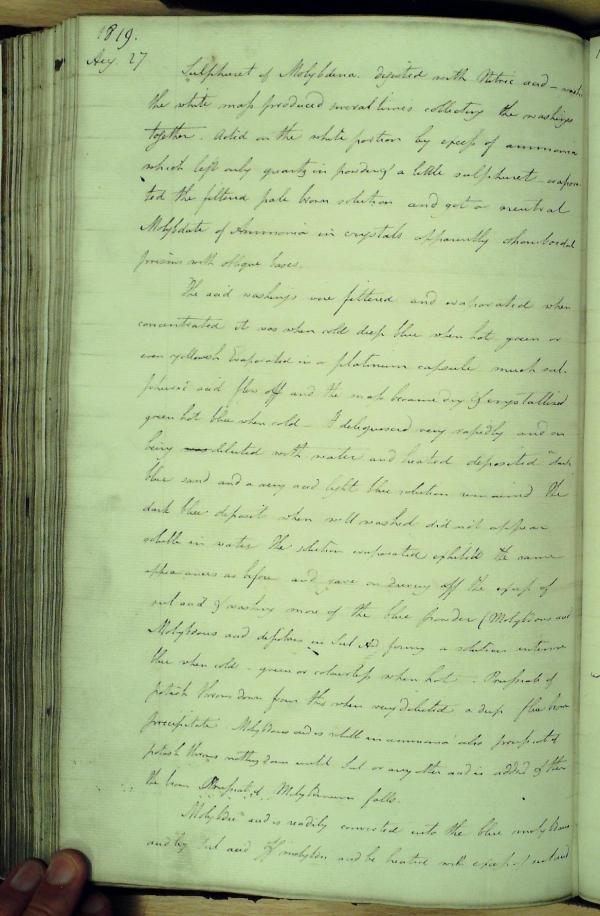 1819.
Aug. 27
Sulphuret of Molybdena digested with Nitric acid - washed
the white mass produced several times collecting the washings
together. Acted on the white portion by excess of ammonia
which left only quartz in powder & a little sulphuret - evapora
ted the filtered pale brown solution and got a neutral
Molybdate of Ammonia in crystals apparently rhomboidal
prisms with oblique bases.
The acid washings were filtered and evaporated when
concentrated it was when cold deep blue when hot green or
even yellowish Evaporated in a platinum capsule much sul-
phuric acid flew off and the mass became dry & crystallized
green hot blue when cold - It deliquesced very rapidly and on
being was diluted with water and heated deposited a dark
blue sand and a very acid light blue solution remained The
dark blue deposit when well washed did not appear
soluble in water The solution evaporated exhibited the same
appearances as before and gave on driving off the excess of
sul acid & washing more of the blue powder (Molybdous acid
Molybdous acid dissolves in Sul Ad forming a solution intense
blue when cold - green or colourless when hot - Prussiate of
potash throws down from this when very diluted a deep brown
precipitate. Molybdous acid in ammonia also prussiate of
potash throws nothing down until Sul or any other acid is added & then
the brown Prussiate of Molybdenum falls.
Molybdic acid is readily converted into the blue molybdous
acid by Sul acid If molybdic acid be heated with excess of sul acid